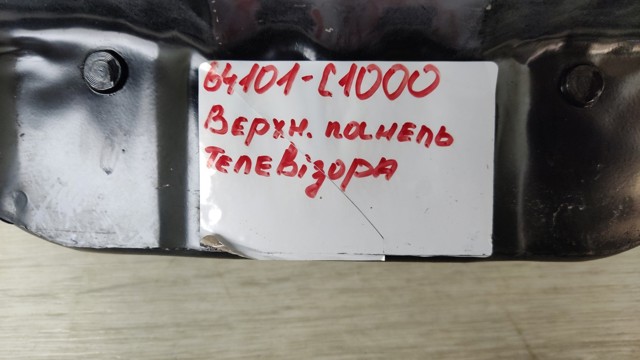 64101-C1000
Верхн. панель
Телевізора